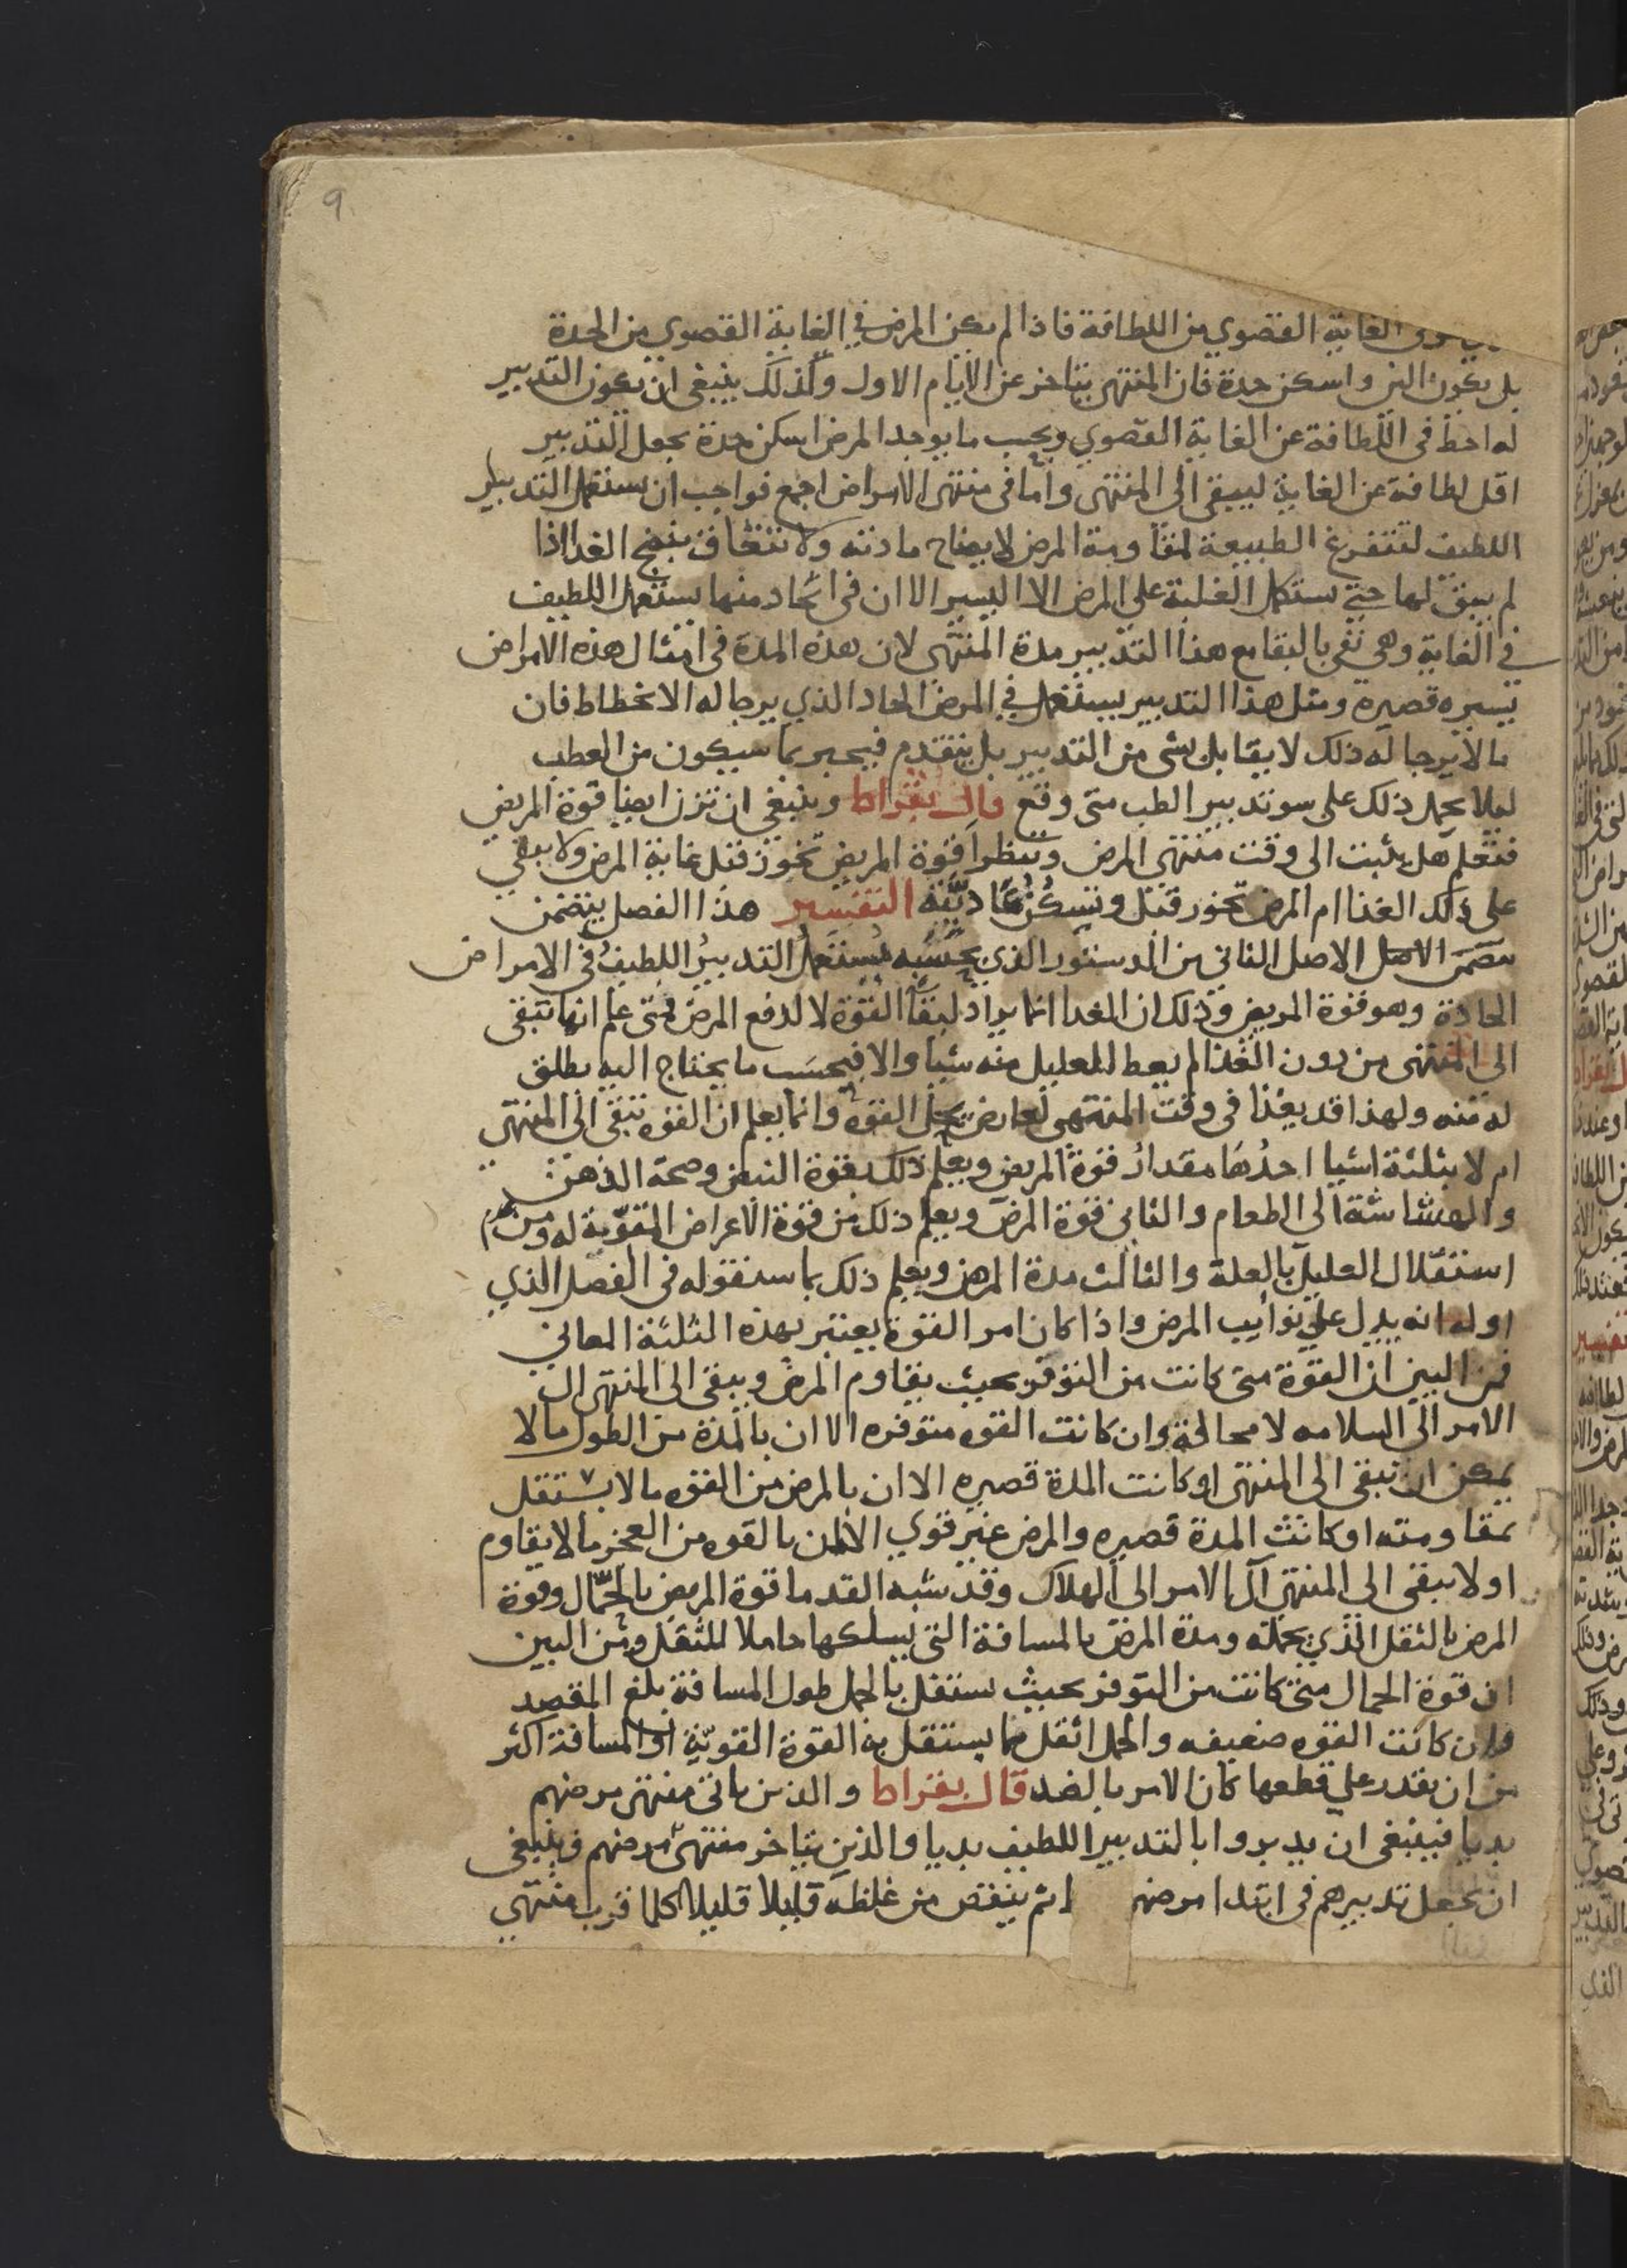 9
الغاية القصوي من اللطافة فاذا لم يكن المرض في الغاية القصوي من الحدة
بل يكون الين واسكن حدة فان المنتهى يتاخر عن الايام الاول ولذلك ينبغي ان يكون التدبير
له احط في اللطافة عن الغاية القصوي وبحسب ما يوجد المرض اسكن حدة يجعل التدبير
اقل لطافة عن الغاية ليبقى الى المنتهى واما في منتهى الامراض اجمع فواجب ان يستعمل التدبير
اللطيف لتتفرغ الطبيعة لمقاومة المرض لايضاح مادته ولا تتشاغل بنضج الغدا اذا
لم يبق لها حتى تستكمل الغلبة على المرض الا اليسير الا ان في الحاد منها يستعمل اللطيف
في الغاية وهي تفي بالبقا مع هذا التدبير مدة المنتهى لان هذه المدة في امثال هذه الامراض
يسيره قصيره ومثل هذا التدبير يستعمل في المرض الحاد الذي يرجا له الانحطاط فان
ما لا يرجا له ذلك لا يقابل بشي من التدبير بل يتقدم فيخبر بما سيكون من العطب
ليلا يحمل ذلك على سو تدبير الطب متى وقع قال بقراط وينبغي ان تزن ايضا قوة المريض
فتعلم هل يثبت الى وقت منتهى المرض وتنظر ا قوة المريض تخور قبل غاية المرض ولا يبقي
على ذلك الغذا ام المرض يخور قبل وتسكن عاديته التفسير هذا الفصل يتضمن
الاصل الثاني من الدستور الذي بحسبه يستعمل التدبير اللطيف في الامراض
الحادة وهو قوة المريض وذلك ان الغدا انما يراد لبقا القوة لا لدفع المرض فمتى علم انها تبقى
الى المنتهى من دون الغذا لم يعط للعليل منه شيا والا فبحسب ما يحتاج اليه يطلق
له منه ولهذا قد يغذا في وقت المنتهى لعارض يحل القوه وانما يعلم ان القوه تبقى الى المنتهى
ام لا بثلثة اشيا احدها مقدار قوة المريض ويعلم ذلك بقوة النبض وصحة الذهن
والهشاشة الى الطعام والثاني قوة المرض ويعلم ذلك من قوة الاعراض المقوية له ومن عدم
استقلال العليل بالعلة والثالث مدة المرض ويعلم ذلك بما سنقوله في الفصل الذي
اوله انه يدل على نوايب المرض واذا كان امر القوة يعتبر بهذه الثلثة المعاني
فمن البين ان القوة متى كانت من التوفر بحيث يقاوم المرض ويبقى الى المنتهى ال
الامر الى السلامه لا محالة وان كانت القوه متوفره الا ان بالمدة من الطول ما لا
يمكن ان تبقى الى المنتهى او كانت المدة قصيره الا ان بالمرض من القوه ما لا يستقل
بمقاومته او كانت المدة قصيره والمرض غير قوي الا ان بالقوه من العجز ما لا يقاوم
او لا يبقى الى المنتهى آل الامر الى الهلاك وقد شبه القدما قوة المريض بالحمال وقوة
المرض بالثقل الذي يحمله ومدة المرض بالمسافة التي يسلكها حاملا للثقل ومن البين
ان قوة الحمال متى كانت من التوفر بحيث يستقل بالحمل طول المسافة بلغ المقصد
وان كانت القوه ضعيفه والحمل اثقل مما يستقل به القوة القوية او المسافة اكثر
من ان يقدر على قطعها كان الامر بالضد قال بقراط والذين ياتي منتهى مرضهم
بديا فينبغي ان يدبروا بالتدبير اللطيف بديا والذين يتاخر منتهى مرضهم فينبغي
ان يجعل تدبيرهم في ابتدا مرضهم ثم ينقص من غلظه قليلا قليلا كلما قرب منتهى